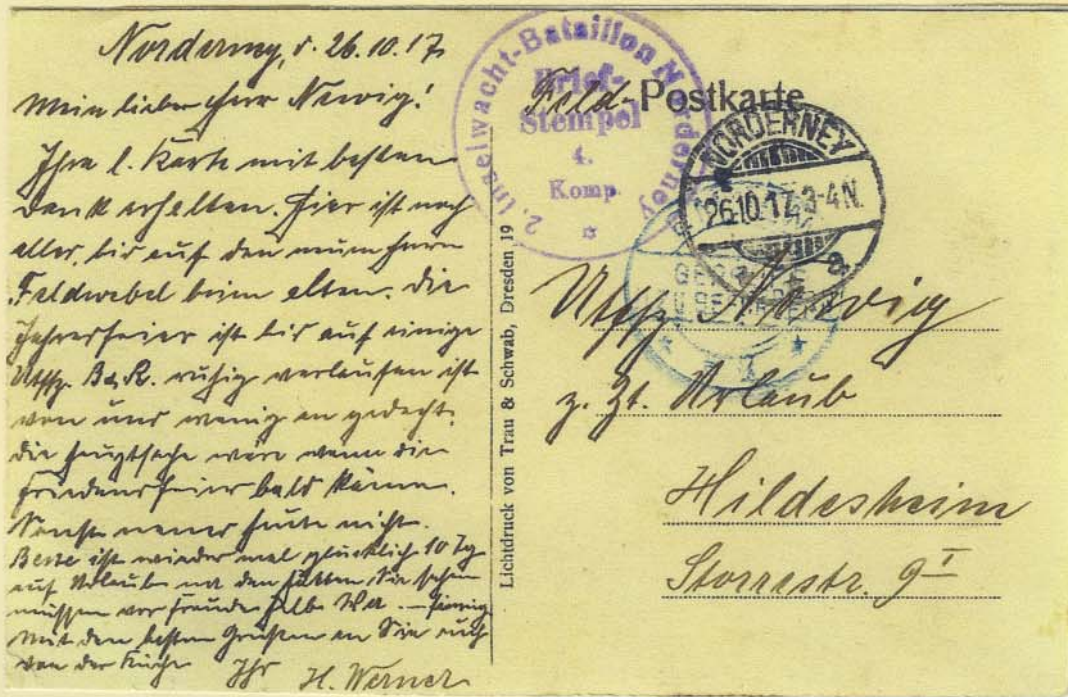 Norderney, d. 26.10.17.
Mein lieber Herr Newig!
Ihre l. Karte mit besten
Dank erhalten. Hier ist noch
alles, bis auf den neuen Herrn
Feldwebel beim alten. Die
Jahresfeier ist bis auf einige
Utffz. ruhig verlaufen ist
von uns wenig an gedacht.
Die Hauptsache wäre wenn die
Friedensfeier bald käme.
Sonst neues heute nicht.
ist wieder mal glücklich 10 Tg
auf Urlaub na den hätten Sie sehen
müssen vor Freude
Mit den besten Grüßen an Sie auch
von der Küche Ihr H. Werner
2. Inselwacht-Bataillon Norderney
Brief-
Stempel
4.
Komp.
Feld-Postkarte
NORDERNEY
26.10.17.3-4N.
a
Lichtdruck von Trau & Schwab, Dresden 19
Utffz Newig
z. Zt. Urlaub
Hildesheim
Storrestr. 9 I